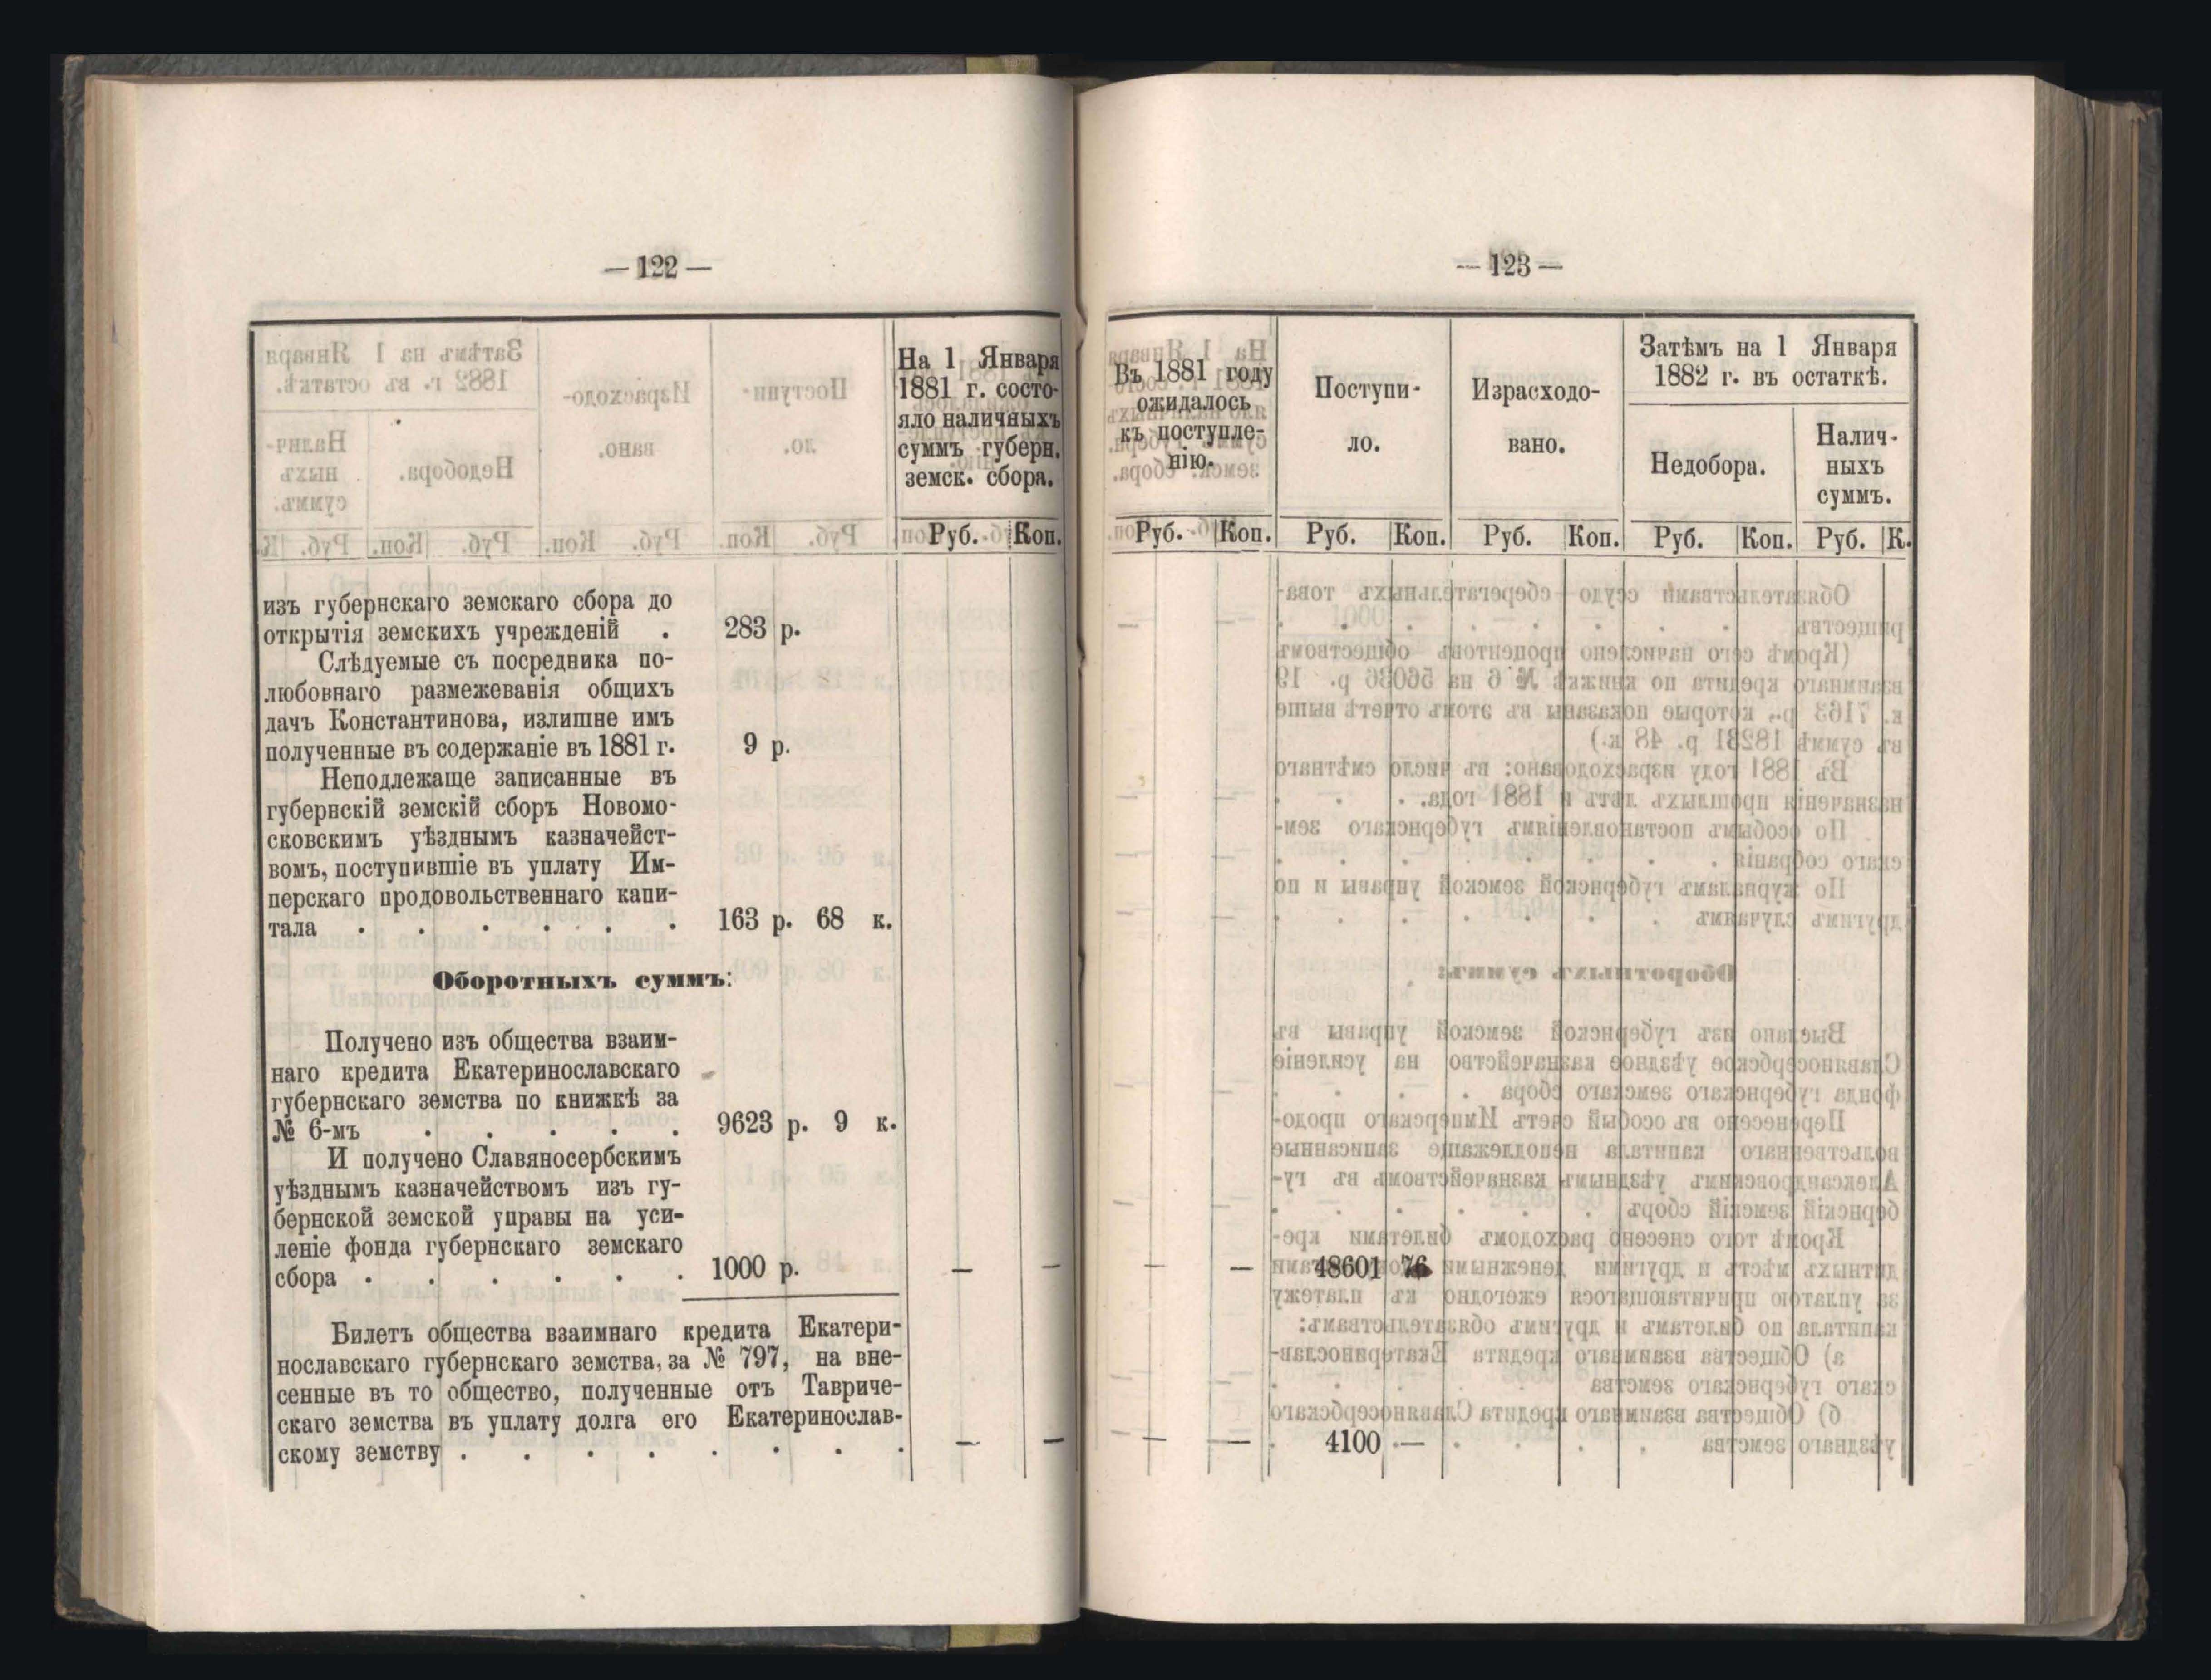 — 122 —
На 1 Января
1881 г. состо-
яло наличныхъ
суммъ губерн.
земск. сбора.
Руб. Коп.
изъ губернскаго земскаго сбора до
открытія земскихъ учрежденій . 283 р.
Слѣдуемые съ посредника по-
любовнаго размежеванія общихъ
дачъ Константинова, излишне имъ
полученные въ содержаніе въ 1881 г. 9 р.
Неподлежаще записанные въ
губернскій земскій сборъ Новомо-
сковскимъ уѣзднымъ казначейст-
вомъ, поступившіе въ уплату Им-
перскаго продовольственнаго капи-
тала . . . . . . 163 р. 68 к.
Оборотныхъ суммъ:
Получено изъ общества взаим-
наго кредита Екатеринославскаго
губернскаго земства по книжкѣ за
№ 6-мъ . . . . . 9623 р. 9 к.
И получено Славяносербскимъ
уѣзднымъ казначействомъ изъ гу-
бернской земской управы на уси-
леніе фонда губернскаго земскаго
сбора . . . . . . 1000 р. — —
Билетъ общества взаимнаго кредита Екатери-
нославскаго губернскаго земства, за № 797, на вне-
сенные въ то общество, полученные отъ Тавриче-
скаго земства въ уплату долга его Екатеринослав-
скому земству . . . . . . . . — —
— 123 —
Въ 1881 году
ожидалось
къ поступле-
нію.
Поступи-
ло.
Израсходо-
вано.
Затѣмъ на 1 Января
1882 г. въ остаткѣ.
Недобора.
Налич-
ныхъ
суммъ.
Руб. Коп. Руб. Коп. Руб. Коп. Руб. Коп. Руб. К.
— — 48601 76
— — 4100 —